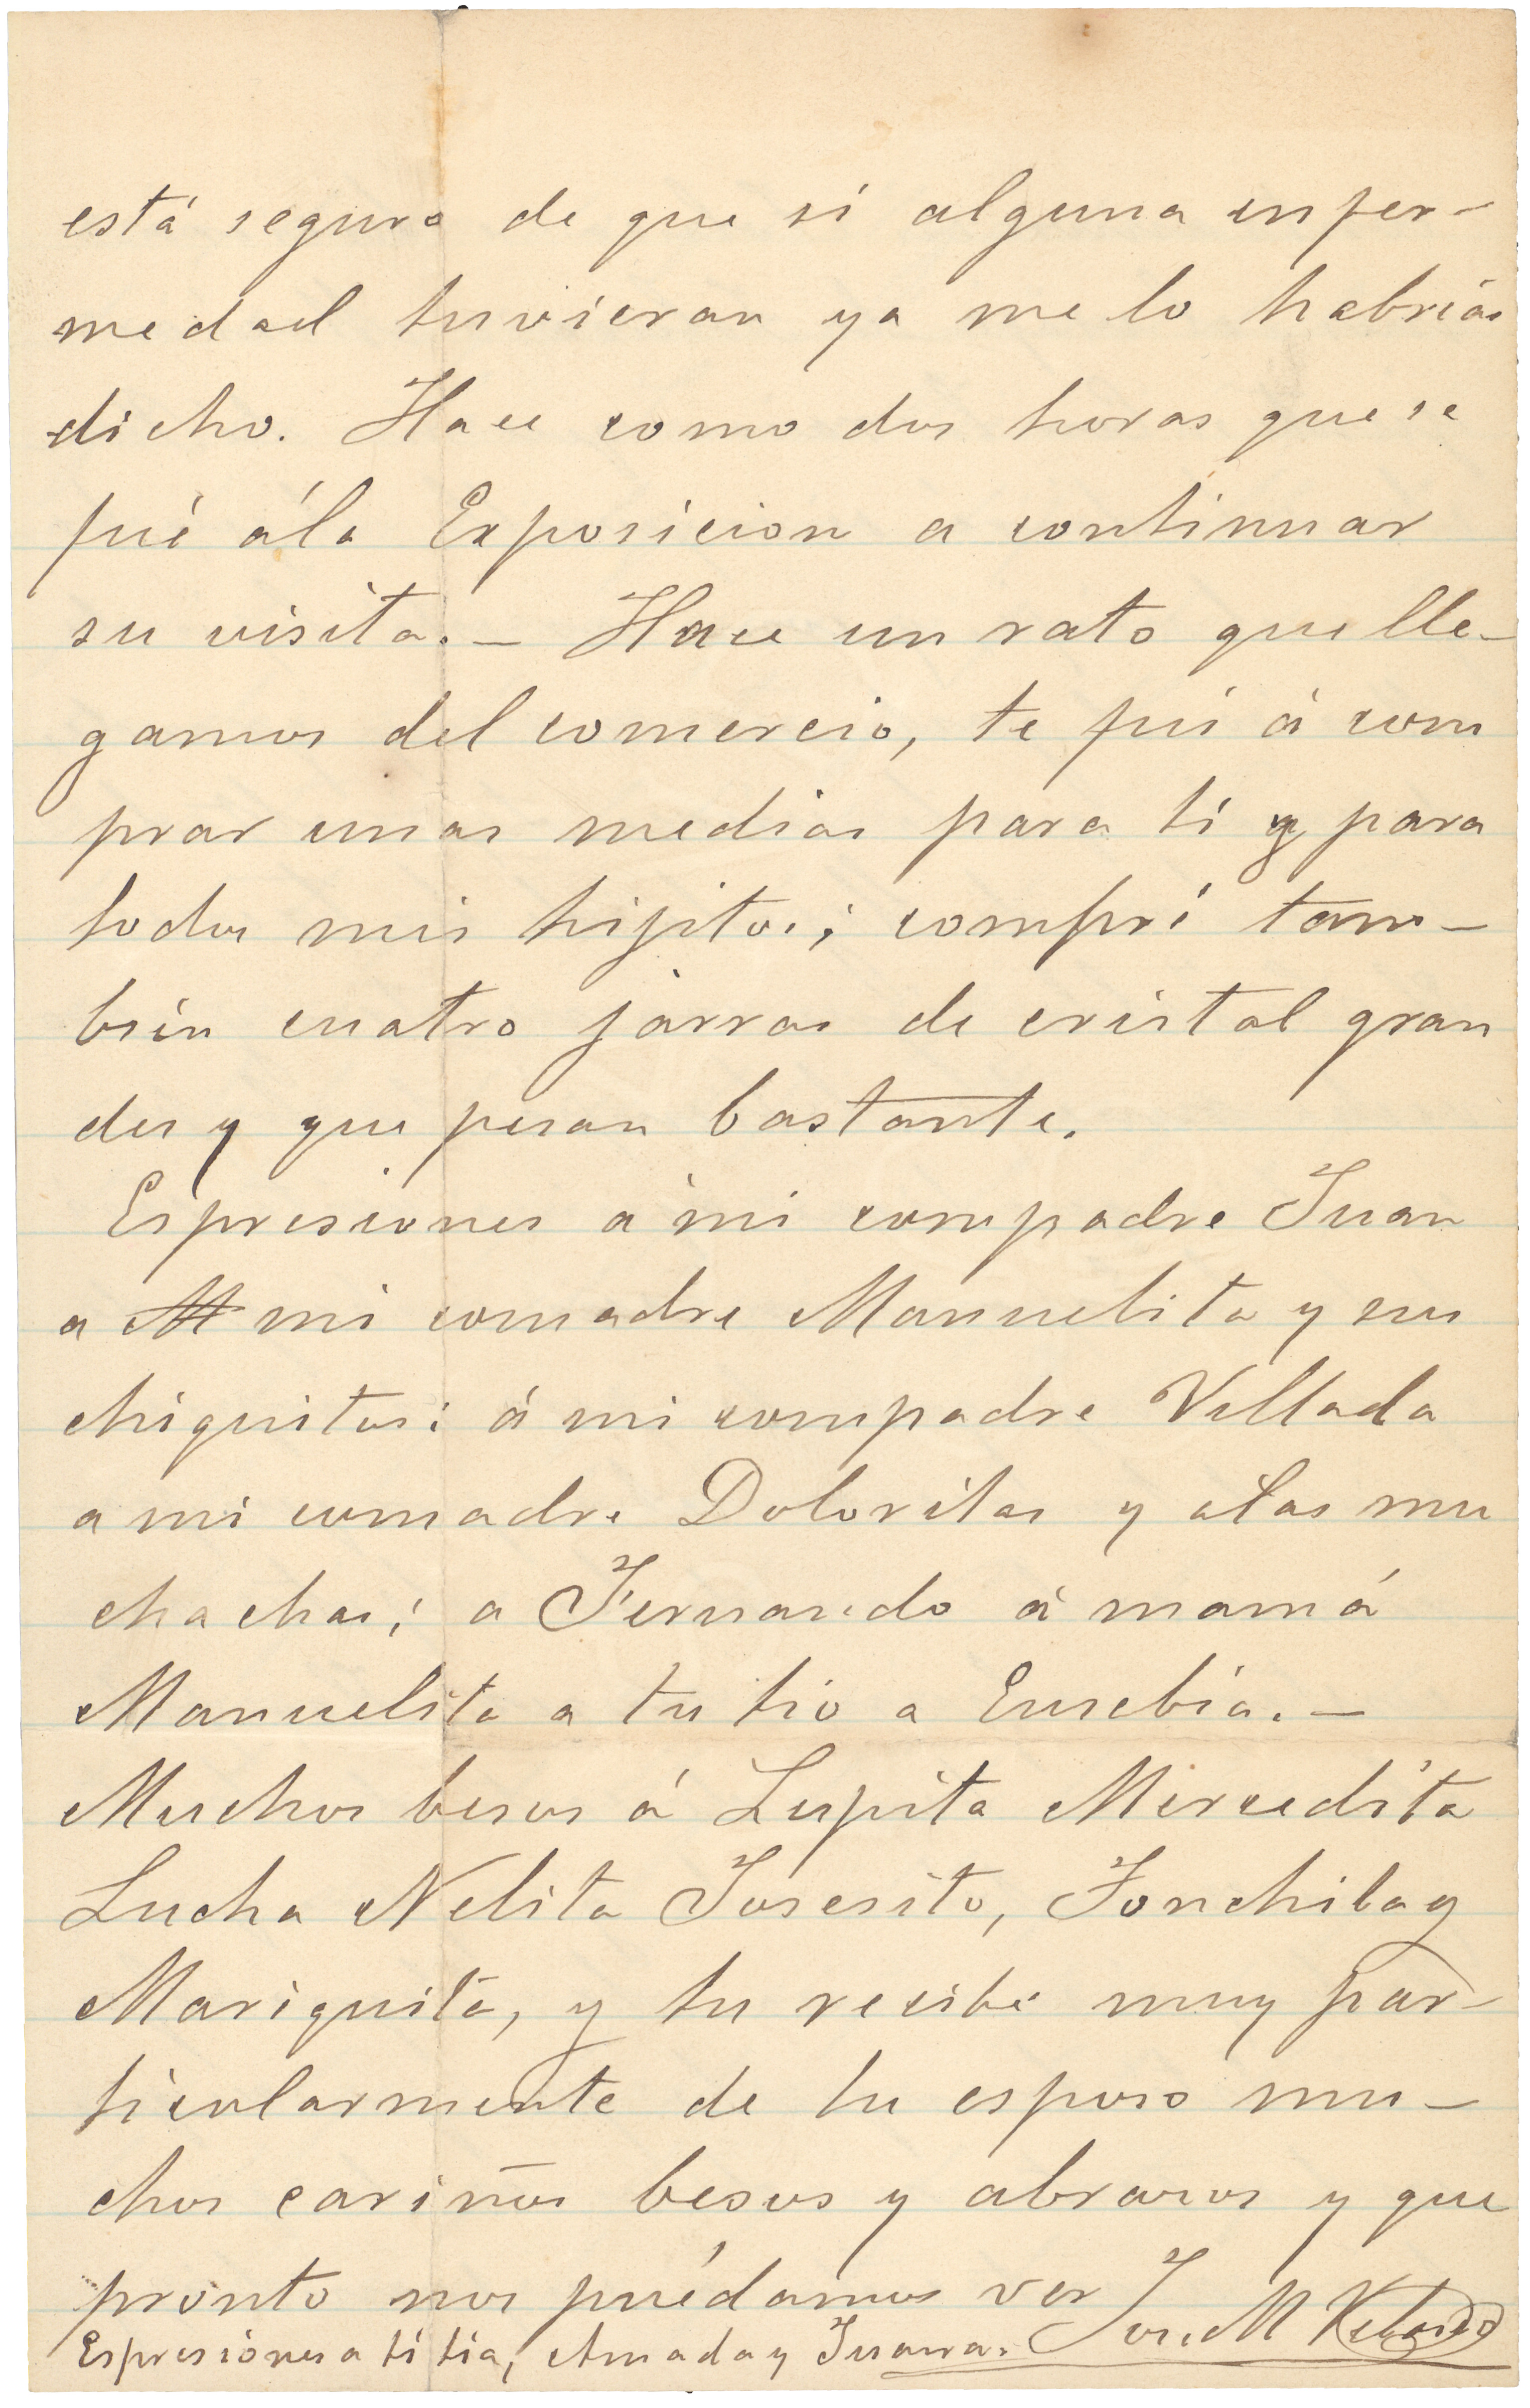 está segura de que si alguna enfer-
medad tuvieran ya me lo habrias
dicho. Hace como dos horas que se
fué á la Exposicion a continuar
su visita. — Hace un rato que lle-
gamos del comercio, te fui á com
prar unas medias para ti y para
todos mis hijitos; compré tam-
bién cuatro jarras de cristal gran
des y que pesan bastante.
Espresiones a mi compadre Juan
a M mi comadre Manuelita y sus
chiquitos: á mi compadre Villada
a mi comadre Doloritas y a las mu
chachas; a Fernando á mamá
Manuelita a tu tio a Eusebia. —
Muchos besos á Lupita Merceditá
Lucha Nelita Josesito, Fonchita y
Mariquita, y tu recibe muy par-
ticularmente de tu esposo mu-
chos cariños besos y abrazos y que
pronto nos puédamos ver José M
Espresiones a ti tia, Amada y Juana.